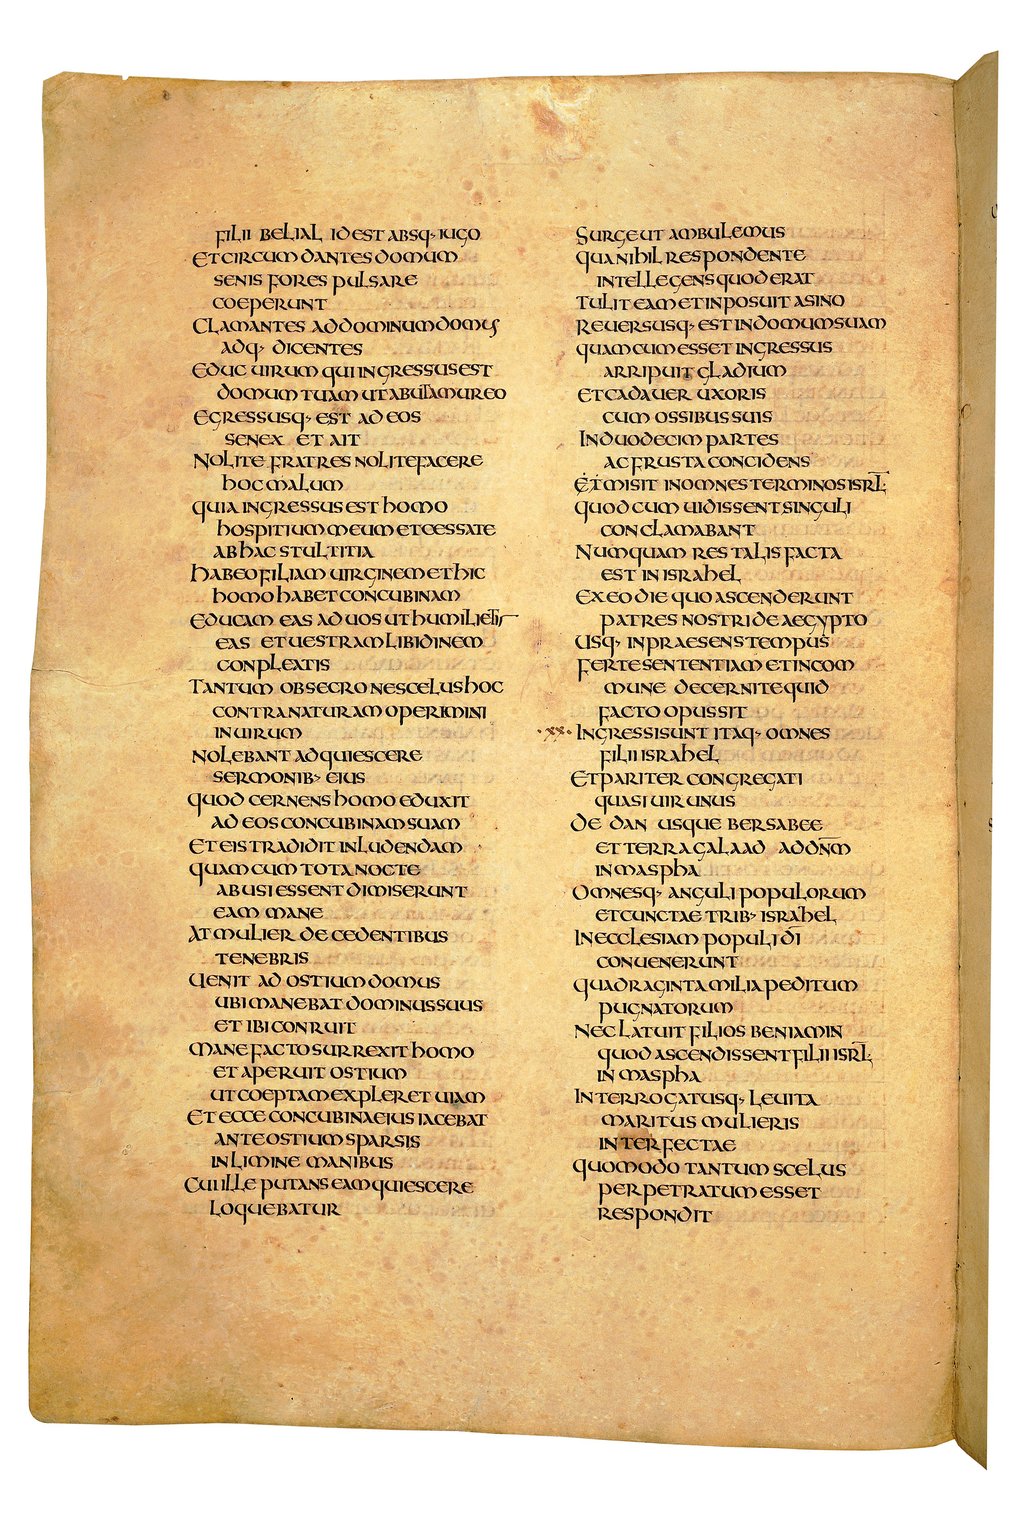 FILII BELIAL IDEST ABSQ· IUGO
ETCIRCUMDANTES DOMUM
SENIS FORES PULSARE
COEPERUNT
CLAMANTES ADDOMINUM DOMUS
ADQ· DICENTES
EDUC UIRUM QUI INGRESSUS EST
DOMUM TUAM UT ABUTAMUR EO
EGRESSUSQ· EST AD EOS
SENEX ET AIT
NOLITE FRATRES NOLITE FACERE
HOC MALUM
QUIA INGRESSUS EST HOMO
HOSPITIUM MEUM ET CESSATE
AB HAC STULTITIA
HABEO FILIAM UIRGINEM ET HIC
HOMO HABET CONCUBINAM
EDUCAM EAS AD UOS UT HUMILIETIS
EAS ET UESTRAM LIBIDINEM
CONPLEATIS
TANTUM OBSECRO NE SCELUS HOC
CONTRA NATURAM OPERIMINI
IN UIRUM
NOLEBANT ADQUIESCERE
SERMONIB· EIUS
QUOD CERNENS HOMO EDUXIT
AD EOS CONCUBINAM SUAM
ET EIS TRADIDIT INLUDENDAM
QUAM CUM TOTA NOCTE
ABUSI ESSENT DIMISERUNT
EAM MANE
AT MULIER DECEDENTIBUS
TENEBRIS
UENIT AD OSTIUM DOMUS
UBI MANEBAT DOMINUS SUUS
ET IBI CONRUIT
MANE FACTO SURREXIT HOMO
ET APERUIT OSTIUM
UT COEPTAM EXPLERET UIAM
ET ECCE CONCUBINA EIUS IACEBAT
ANTE OSTIUM SPARSIS
IN LIMINE MANIBUS
CUI ILLE PUTANS EAM QUIESCERE
LOQUEBATUR
SURGE UT AMBULEMUS
QUA NIHIL RESPONDENTE
INTELLEGENS QUOD ERAT
TULIT EAM ET INPOSUIT ASINO
REUERSUSQ· EST IN DOMUM SUAM
QUAM CUM ESSET INGRESSUS
ARRIPUIT GLADIUM
ET CADAUER UXORIS
CUM OSSIBUS SUIS
IN DUODECIM PARTES
AC FRUSTA CONCIDENS
EXMISIT IN OMNES TERMINOS ISRL̄
QUOD CUM UIDISSENT SINGULI
CONCLAMABANT
NUMQUAM RES TALIS FACTA
EST IN ISRAHEL
EX EO DIE QUO ASCENDERUNT
PATRES NOSTRI DE AEGYPTO
USQ· IN PRAESENS TEMPUS
FERTE SENTENTIAM ET IN COM
MUNE DECERNITE QUID
FACTO OPUS SIT
·XX· INGRESSI SUNT ITAQ· OMNES
FILII ISRAHEL
ET PARITER CONGREGATI
QUASI UIR UNUS
DE DAN USQUE BERSABEE
ET TERRA GALAAD AD DN̄M
IN MASPHA
OMNESQ· ANGULI POPULORUM
ET CUNCTAE TRIB· ISRAHEL
IN ECCLESIAM POPULI DĪ
CONUENERUNT
QUADRAGINTA MILIA PEDITUM
PUGNATORUM
NEC LATUIT FILIOS BENIAMIN
QUOD ASCENDISSENT FILII ISRL̄
IN MASPHA
INTERROGATUSQ· LEUITA
MARITUS MULIERIS
INTERFECTAE
QUOMODO TANTUM SCELUS
PERPETRATUM ESSET
RESPONDIT